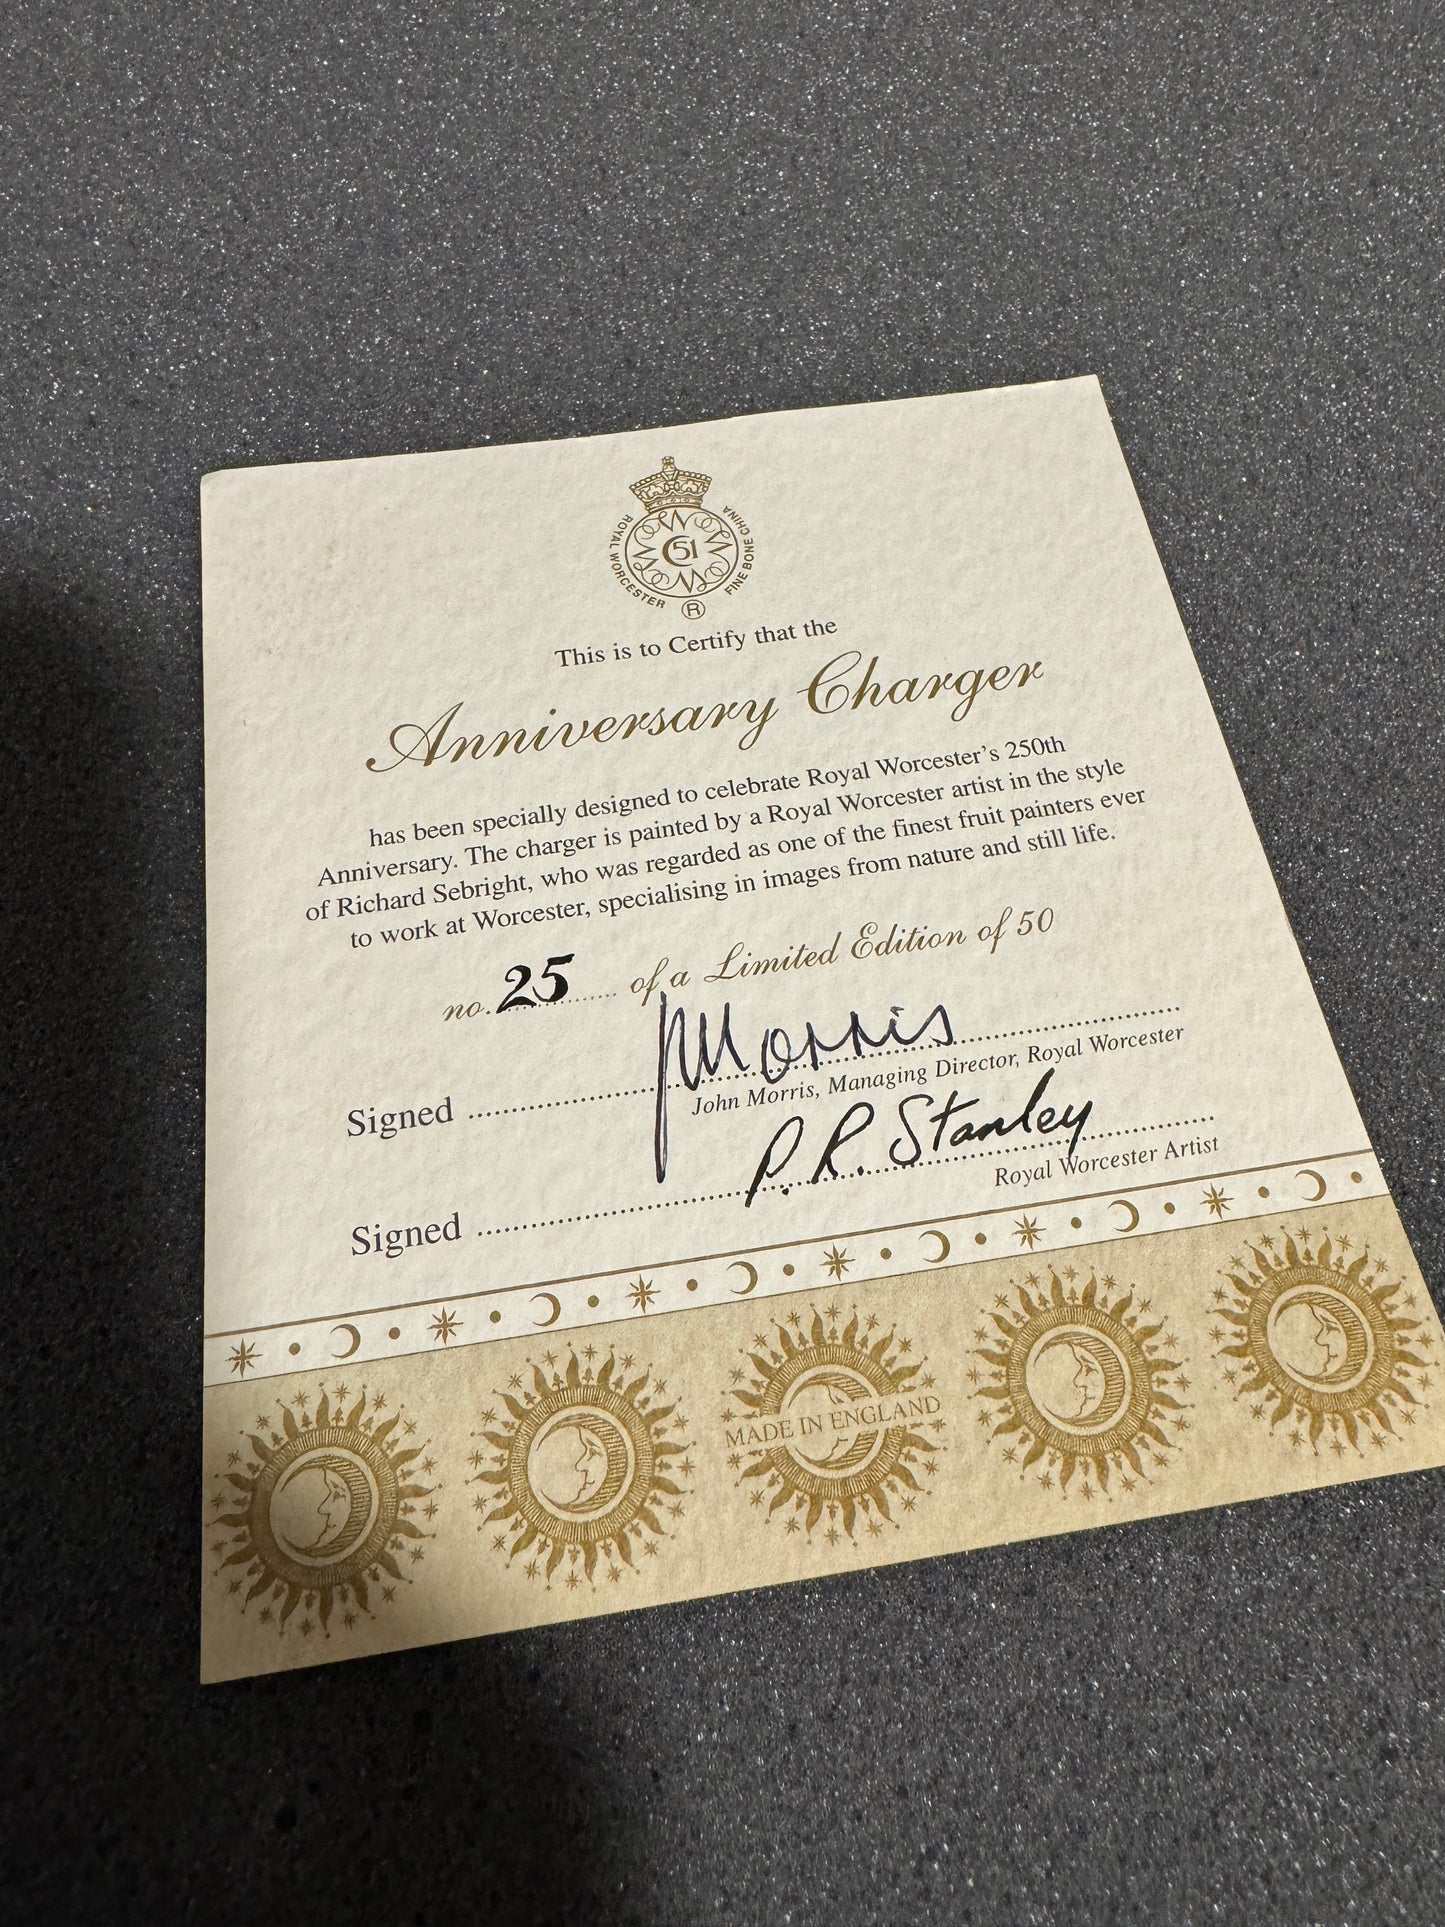 ROYAL WORCESTER
FINE BONE CHINA
51
®
This is to Certify that the
Anniversary Charger
has been specially designed to celebrate Royal Worcester's 250th
Anniversary. The charger is painted by a Royal Worcester artist in the style
of Richard Sebright, who was regarded as one of the finest fruit painters ever
to work at Worcester, specialising in images from nature and still life.
no. 25 of a Limited Edition of 50
Signed J Morris
John Morris, Managing Director, Royal Worcester
Signed P. R. Stanley
Royal Worcester Artist
MADE IN ENGLAND